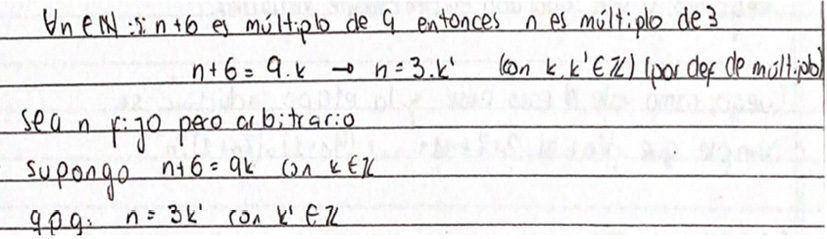 ∀n ∈ ℕ : si n+6 es múltiplo de 9 entonces n es múltiplo de 3
n+6 = 9.k → n = 3.k' (con k, k' ∈ ℤ) (por def de múltiplo)
sea n fijo pero arbitrario
supongo n+6 = 9k con k ∈ ℤ
q.p.q. n = 3k' con k' ∈ ℤ